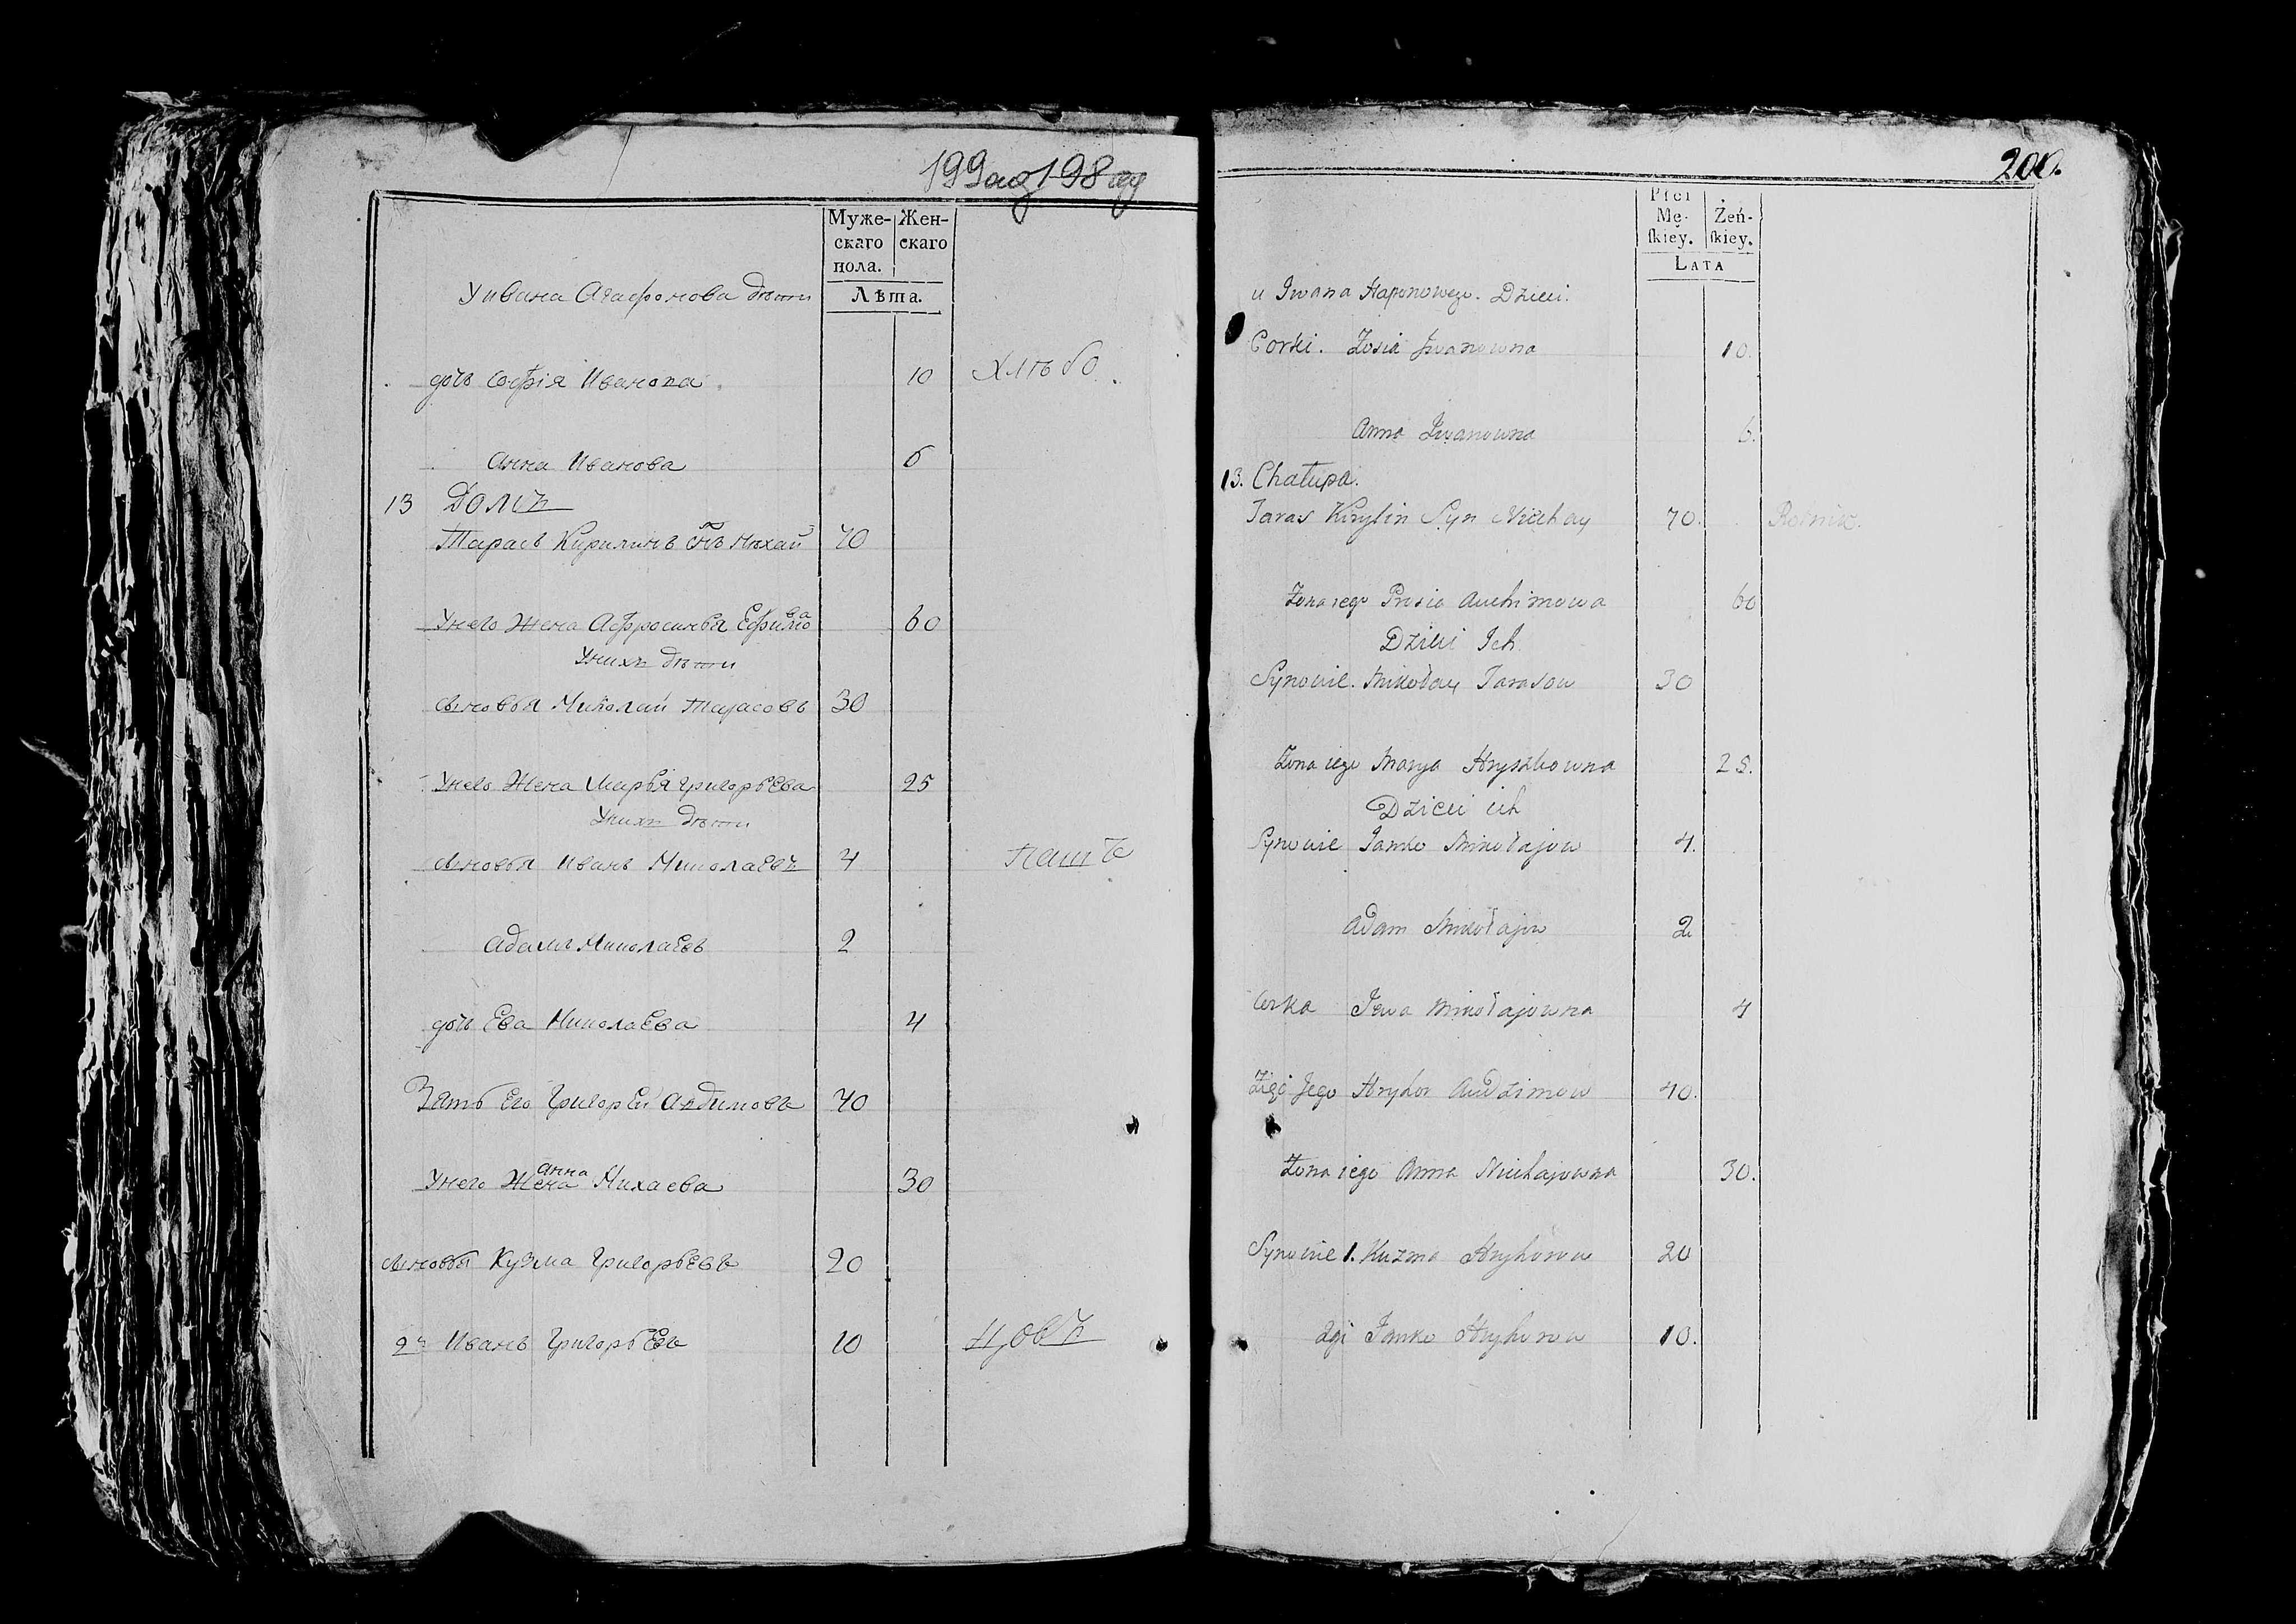 199 од 198 од
Муже- Жен-
скаго скаго
пола.
Лѣта.
У Ивана Агафонова дѣти
дочь Софія Иванова 10 Хлѣбо
Анна Иванова 6
13 Домъ
Тарасъ Кирилинъ снъ Нихай 70
У него Жена Аффросинья Ефимова 60
У нихъ дѣти
сыновья Миколай Тарасовъ 30
У него Жена Марья Григорьева 25
У нихъ дѣти
сыновья Иванъ Миколаевъ 4 паш
Адамъ Миколаевъ 2
дочь Ева Миколаева 4
Зять Его Григорей Авдимовъ 40
У него Жена Анна Нихаева 30
сыновья Кузма Григорьевъ 20
2й Иванъ Григорьевъ 10 цовъ
200.
Płci
Mę- Żeń-
skiey. skiey.
LATA
u Iwana Haponowego. Dzieci.
Corki. Zosia Iwanowna 10.
Anna Iwanowna 6.
13. Chałupa.
Taras Kirylin Syn Niichay 70. Rolnik.
Żona iego Prosia Auchimowa 60
Dzieci Ich
Synowie. Mikołay Tarasow 30
Żona iego Marya Hryszkowna 25.
Dzieci ich
Synowie Janko Mikołajow 4.
Adam Mikołajow 2
Corka Jewa Mikołajowna 4
Zięć Jego Hryhor Audzimow 40.
Żona iego Anna Niichajowna 30.
Synowie 1. Kuzma Hryhorow 20
2gi Janko Hryhorow 10.